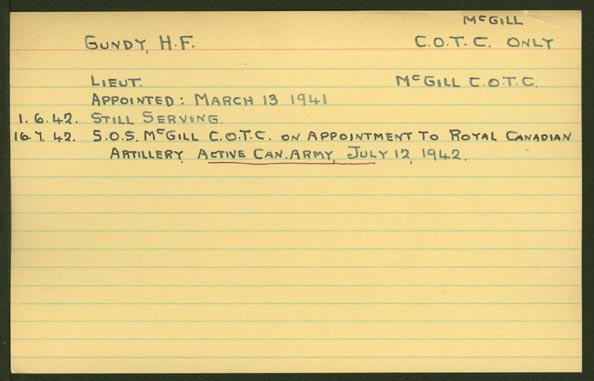 McGILL
GUNDY, H.F. C.O.T.C. ONLY
LIEUT. McGILL C.O.T.C.
APPOINTED: MARCH 13 1941
1.6.42. STILL SERVING.
16.7.42. S.O.S. McGILL C.O.T.C. ON APPOINTMENT TO ROYAL CANADIAN
ARTILLERY, ACTIVE CAN. ARMY, JULY 12, 1942.